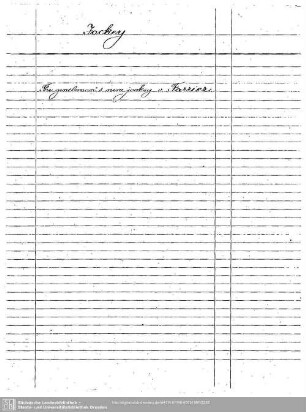 Jockey
The gentleman's new jockey v. Farrier.
Sächsische Landesbibliothek -
Staats- und Universitätsbibliothek Dresden